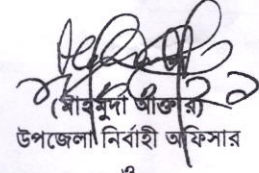 (মাহমুদা আক্তার)
উপজেলা নির্বাহী অফিসার
ও